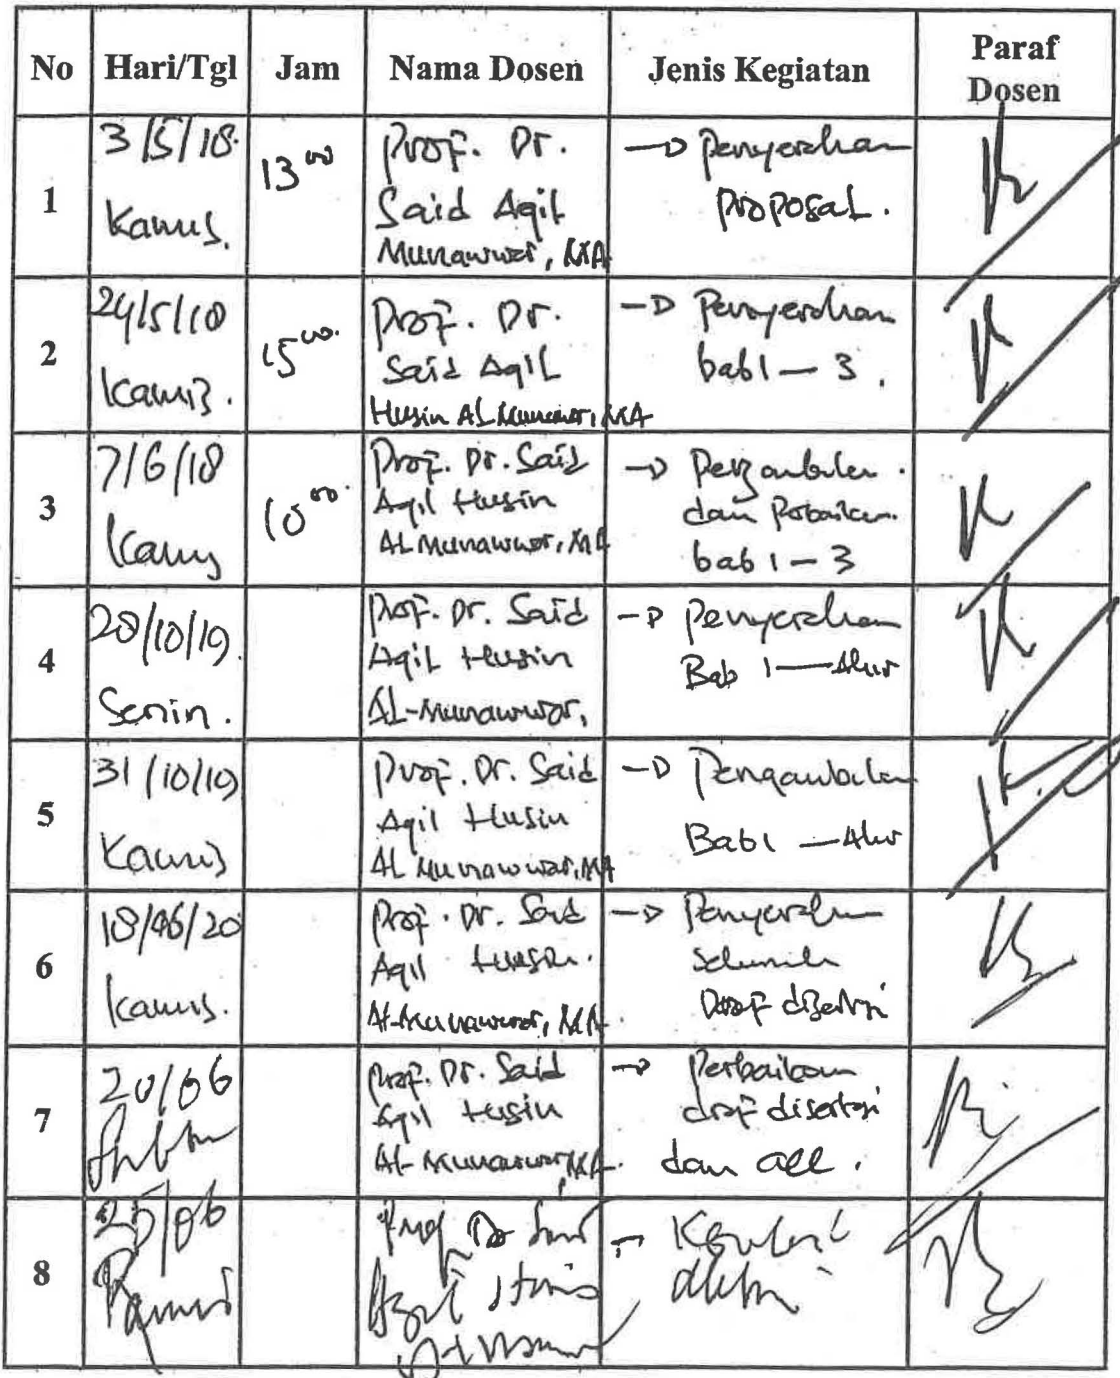 No Hari/Tgl Jam Nama Dosen Jenis Kegiatan Paraf Dosen
1
3/5/18.
Kamis.
13 00
Prof. Dr.
Said Aqil
Munawwar, MA
Penyerahan
proposal.
2
24/5/18
Kamis.
15 00.
Prof. Dr.
Said Aqil
Husin Al Munawar, MA
Penyerahan
bab 1 — 3.
3
7/6/18
Kamis
10 00.
Prof. Dr. Said
Aqil Husin
AL Munawwar, MA
Pengambilan
dan Perbaikan
bab 1 — 3
4
28/10/19.
Senin.
Prof. Dr. Said
Aqil Husin
AL-Munawwar,
Penyerahan
Bab 1 — Akhir
5
31/10/19
Kamis
Prof. Dr. Said
Aqil Husin
AL Munawwar, MA
Pengambilan
Bab 1 — Akhir
6
18/06/20
Kamis.
Prof. Dr. Said
Aqil Husin.
Al-Munawwar, MA.
Penyerahan
Draf disertasi
7
20/06
Prof. Dr. Said
Aqil Husin
Al-Munawwar, MA.
Perbaikan
draf disertasi
dan acc.
8
25/06
Kamis
Prof Dr Said